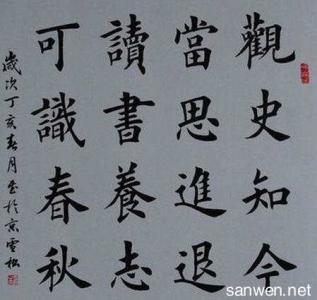 觀史知今
當思進退
讀書養志
可識春秋
歲次丁亥春月書於京雲松
sanwen.net